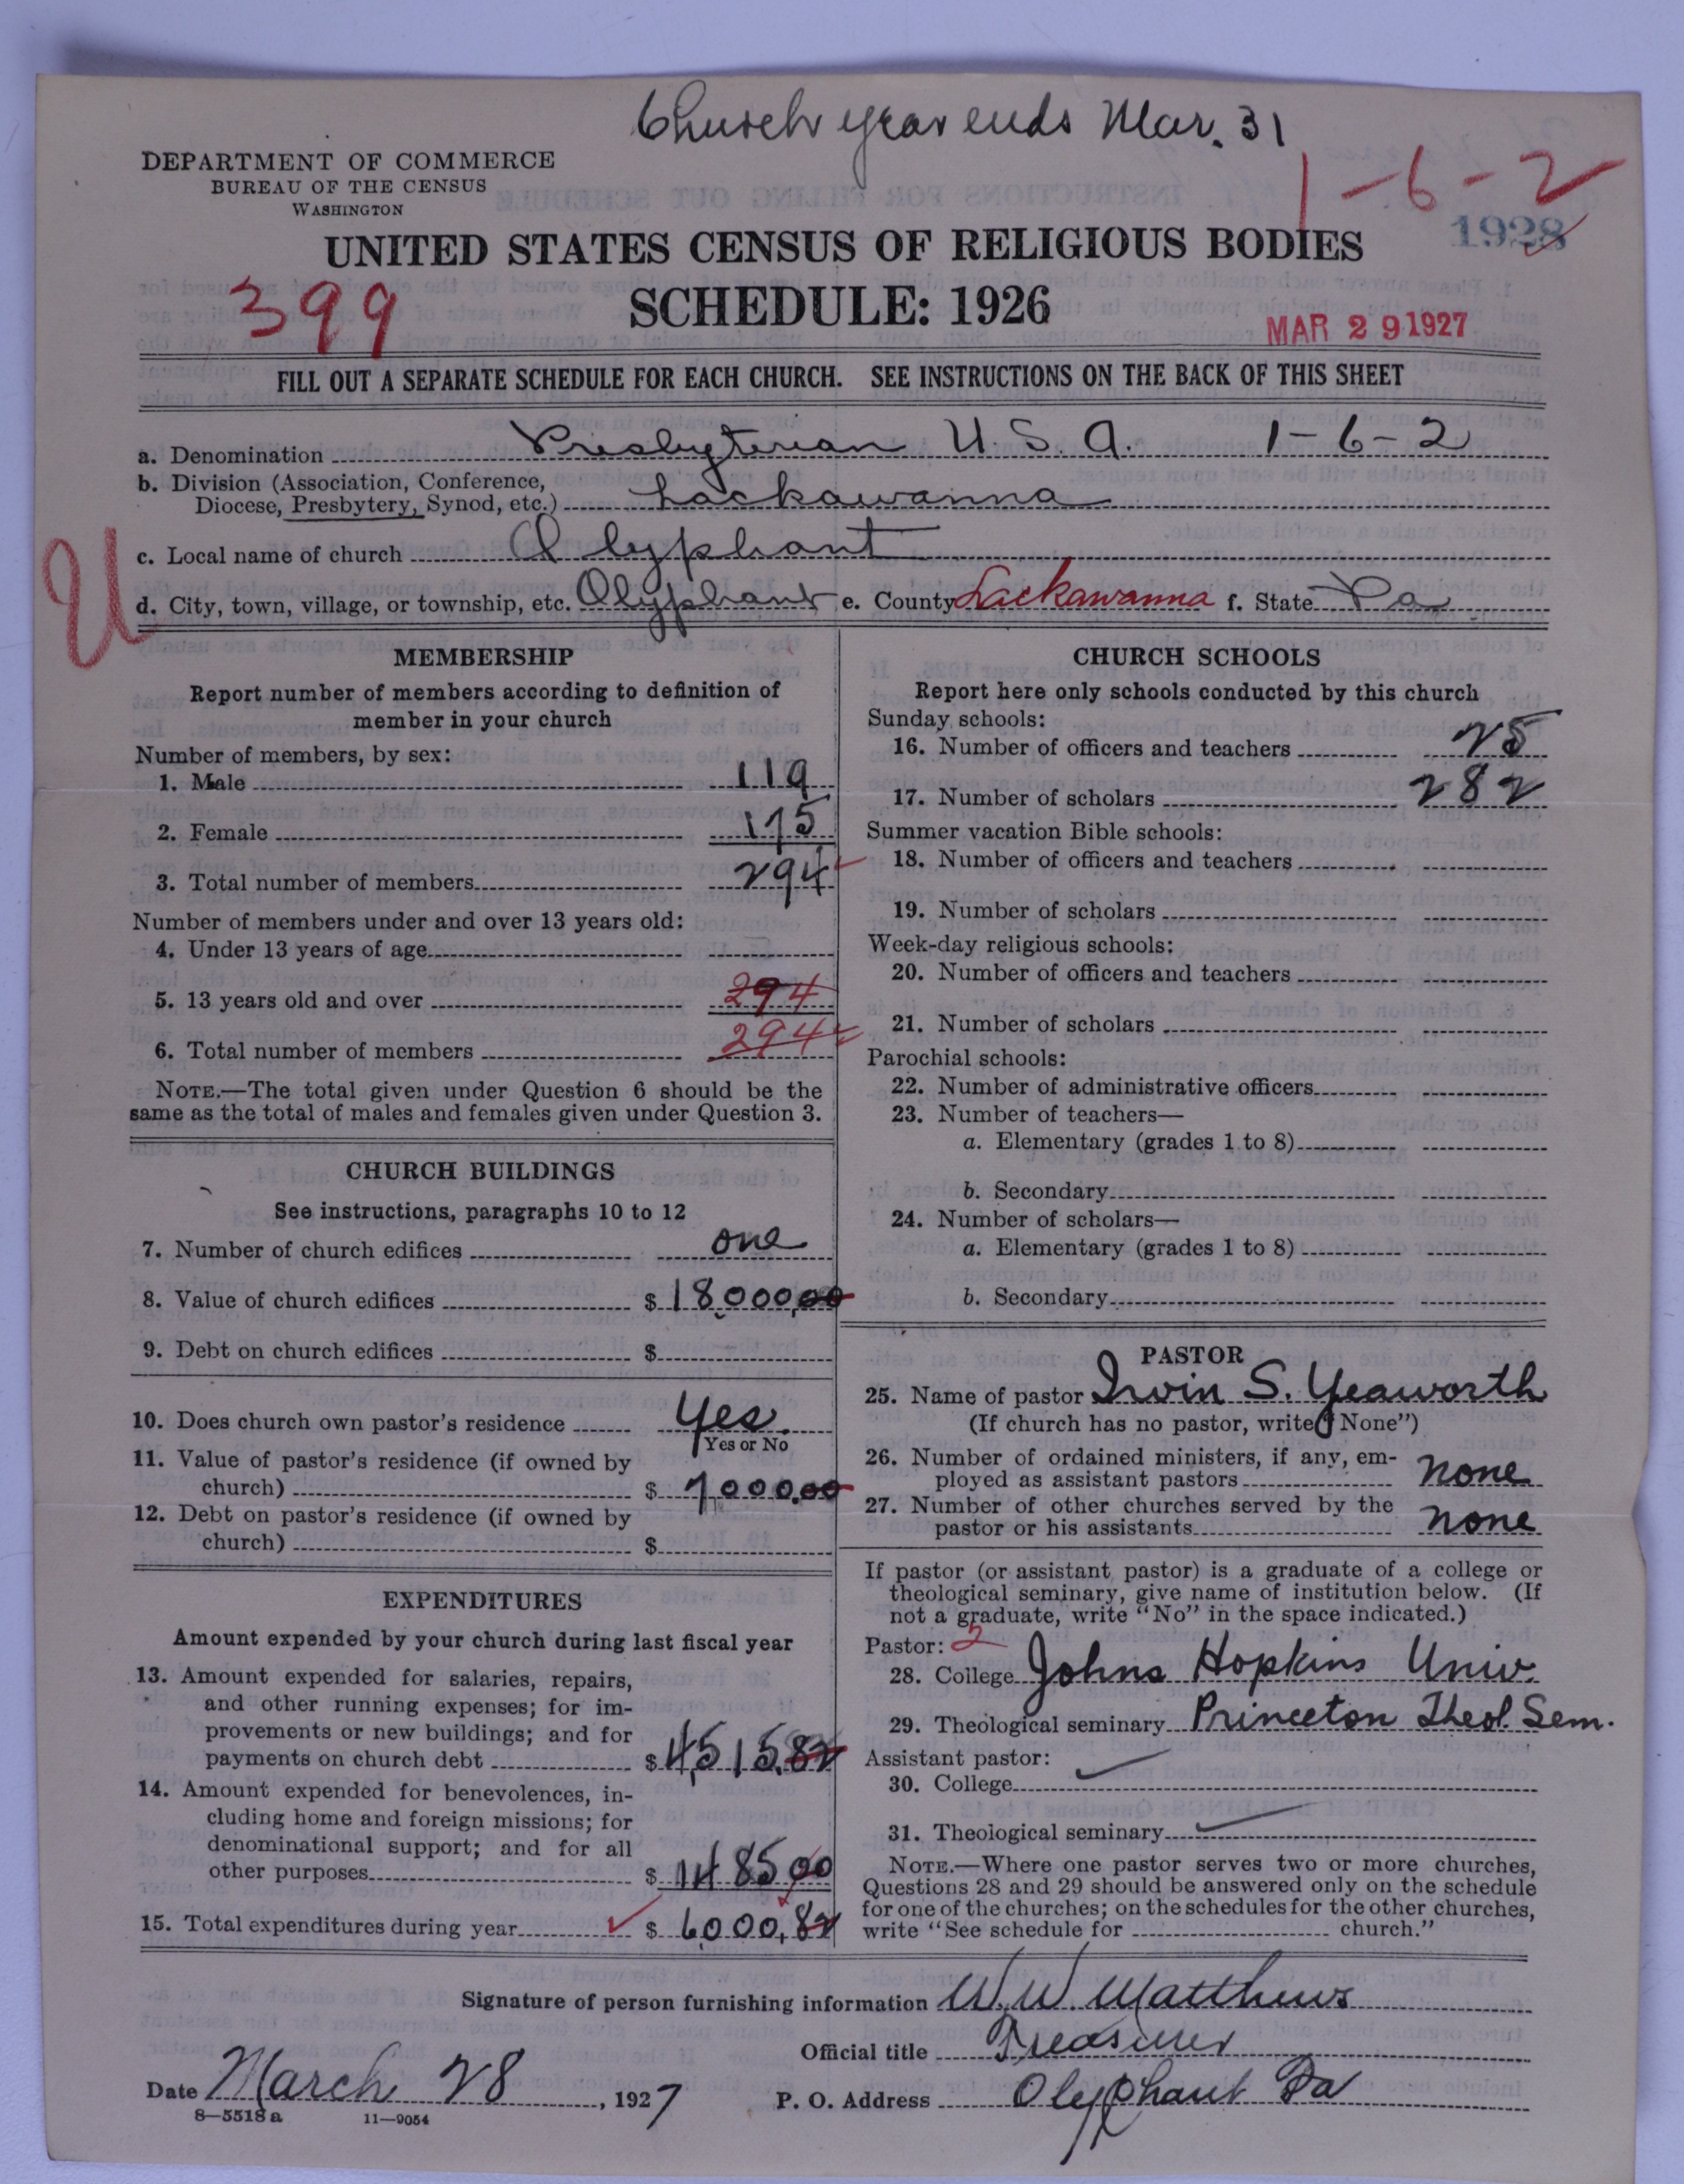 Church year ends Mar. 31
DEPARTMENT OF COMMERCE
BUREAU OF THE CENSUS
WASHINGTON
1-6-2
1928
UNITED STATES CENSUS OF RELIGIOUS BODIES
399
SCHEDULE: 1926
MAR 29 1927
FILL OUT A SEPARATE SCHEDULE FOR EACH CHURCH. SEE INSTRUCTIONS ON THE BACK OF THIS SHEET
a. Denomination Presbyterian U. S. A. 1-6-2
b. Division (Association, Conference,
Diocese, Presbytery, Synod, etc.) Lackawanna
c. Local name of church Olyphant
U
d. City, town, village, or township, etc. Olyphant e. County Lackawanna f. State Pa
MEMBERSHIP
Report number of members according to definition of
member in your church
Number of members, by sex:
1. Male 119
2. Female 175
3. Total number of members 294
Number of members under and over 13 years old:
4. Under 13 years of age
5. 13 years old and over 294
6. Total number of members 294
NOTE.—The total given under Question 6 should be the
same as the total of males and females given under Question 3.
CHURCH BUILDINGS
See instructions, paragraphs 10 to 12
7. Number of church edifices one
8. Value of church edifices $ 18,000,00
9. Debt on church edifices $
10. Does church own pastor's residence Yes.
Yes or No
11. Value of pastor's residence (if owned by
church) $ 7000.00
12. Debt on pastor's residence (if owned by
church) $
EXPENDITURES
Amount expended by your church during last fiscal year
13. Amount expended for salaries, repairs,
and other running expenses; for im-
provements or new buildings; and for
payments on church debt $ 4,515.82
14. Amount expended for benevolences, in-
cluding home and foreign missions; for
denominational support; and for all
other purposes $ 1485 00
15. Total expenditures during year $ 6,000,82
CHURCH SCHOOLS
Report here only schools conducted by this church
Sunday schools:
16. Number of officers and teachers 25
17. Number of scholars 282
Summer vacation Bible schools:
18. Number of officers and teachers
19. Number of scholars
Week-day religious schools:
20. Number of officers and teachers
21. Number of scholars
Parochial schools:
22. Number of administrative officers
23. Number of teachers—
a. Elementary (grades 1 to 8)
b. Secondary
24. Number of scholars—
a. Elementary (grades 1 to 8)
b. Secondary
PASTOR
25. Name of pastor Irvin S. Yeaworth
(If church has no pastor, write "None")
26. Number of ordained ministers, if any, em-
ployed as assistant pastors none
27. Number of other churches served by the
pastor or his assistants none
If pastor (or assistant pastor) is a graduate of a college or
theological seminary, give name of institution below. (If
not a graduate, write "No" in the space indicated.)
Pastor: 2
28. College Johns Hopkins Univ.
29. Theological seminary Princeton Theol. Sem.
Assistant pastor:
30. College
31. Theological seminary
NOTE.—Where one pastor serves two or more churches,
Questions 28 and 29 should be answered only on the schedule
for one of the churches; on the schedules for the other churches,
write "See schedule for church."
Signature of person furnishing information W. W. Matthews
Official title Treasurer
Date March 28, 1927 P. O. Address Olyphant Pa
8—5518 a 11—9054